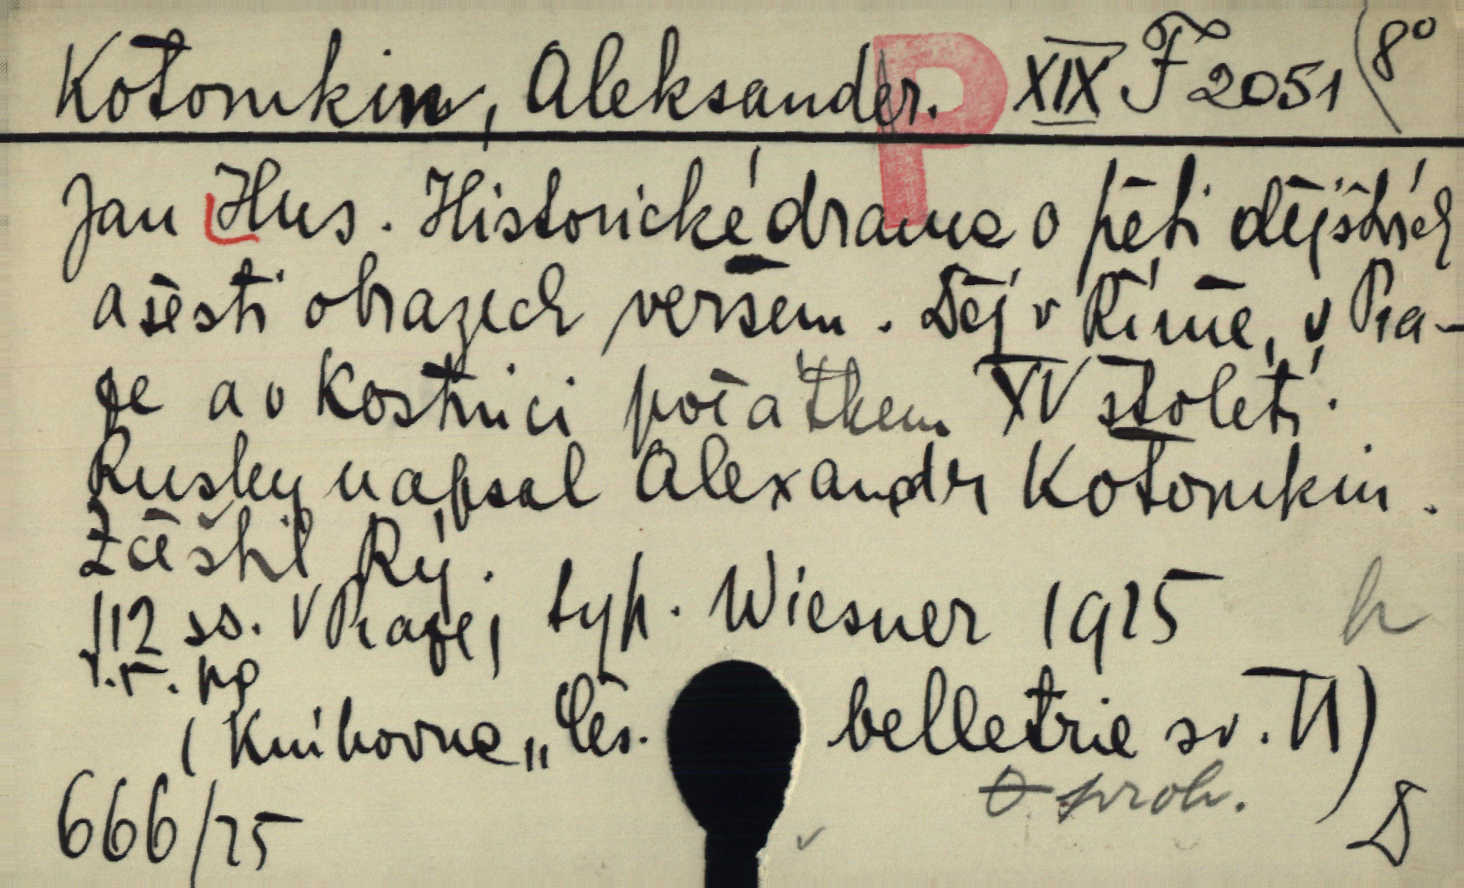 Kotomkin, Aleksandr. XIX F 2051 (8°
P
Jan Hus. Historické drama o pěti dějstvích
a šesti obrazech veršem. Děj v Římě, v Pra-
ze a v Kostnici počátkem XV století.
Rusky napsal Alexandr Kotomkin.
Zčeštil Rý.
112 ss. V Praze, typ. Wiesner 1925
h
(Knihovna „Čes. belletrie sv. VI)
prob.
666/25